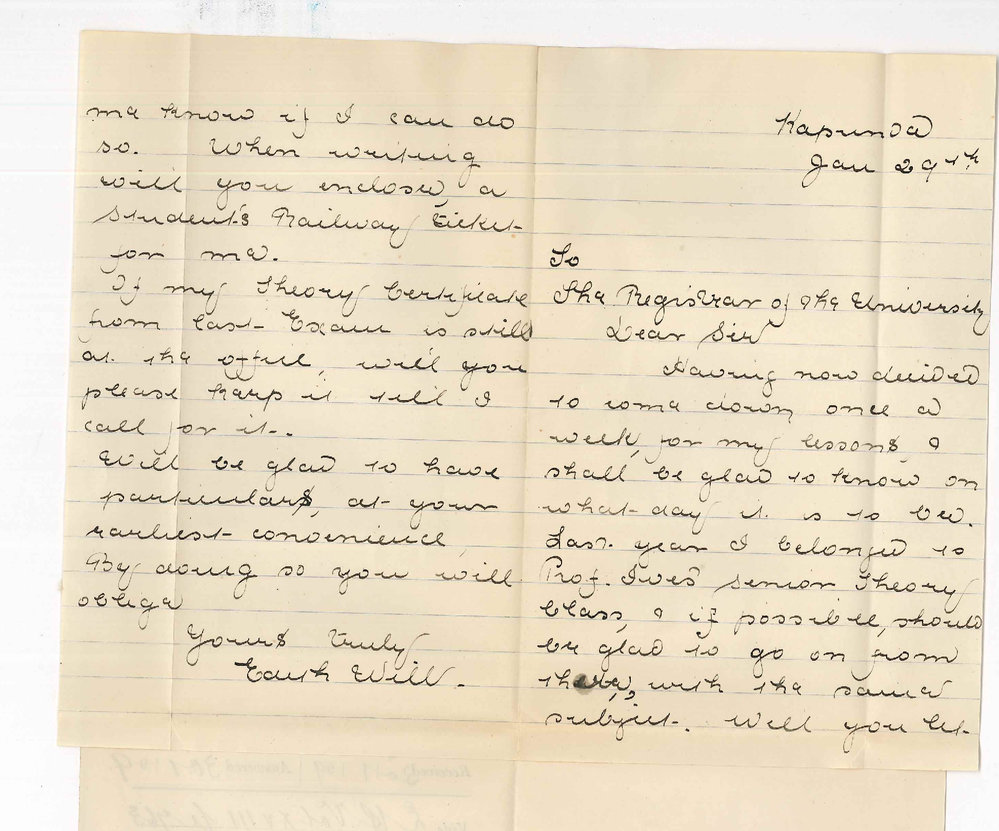 Kapunda
Jan 29th
To
The Registrar of the University
Dear Sir
Having now decided
to come down once a
week, for my lessons, I
shall be glad to know on
what day it is to be.
Last year I belonged to
Prof. Ives' senior Theory
Class, & if possible, should
be glad to go on from
there, with the same
subject. Will you let
me know if I can do
so. When writing
will you enclose, a
Student's Railway Ticket
for me.
If my Theory Certificate
from last Exam is still
at the office, will you
please keep it till I
call for it.
Will be glad to have
particulars, at your
earliest convenience,
By doing so you will
oblige
Yours truly
Edith Will.